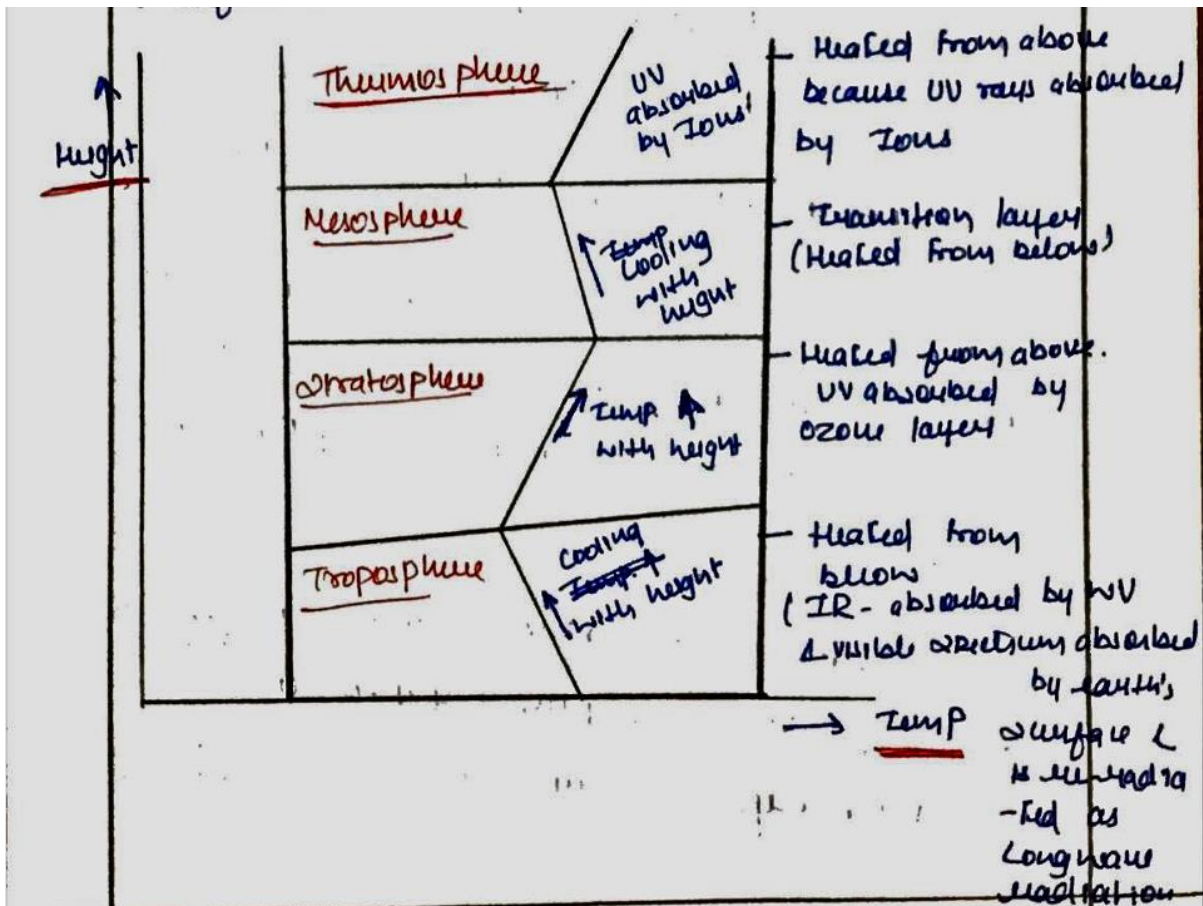 Height
Thermosphere
UV
absorbed
by Ions
Heated from above
because UV rays absorbed
by Ions
Mesosphere
Temp
Cooling
with
height
Transition layer
(Heated from below)
Stratosphere
Temp ↑
with height
Heated from above.
UV absorbed by
ozone layer
Troposphere
Cooling
Temp ↑
with height
Heated from
below
(IR - absorbed by WV
& visible spectrum absorbed
by earth's
surface &
is re-radia
-ted as
Longwave
radiation
→ Temp